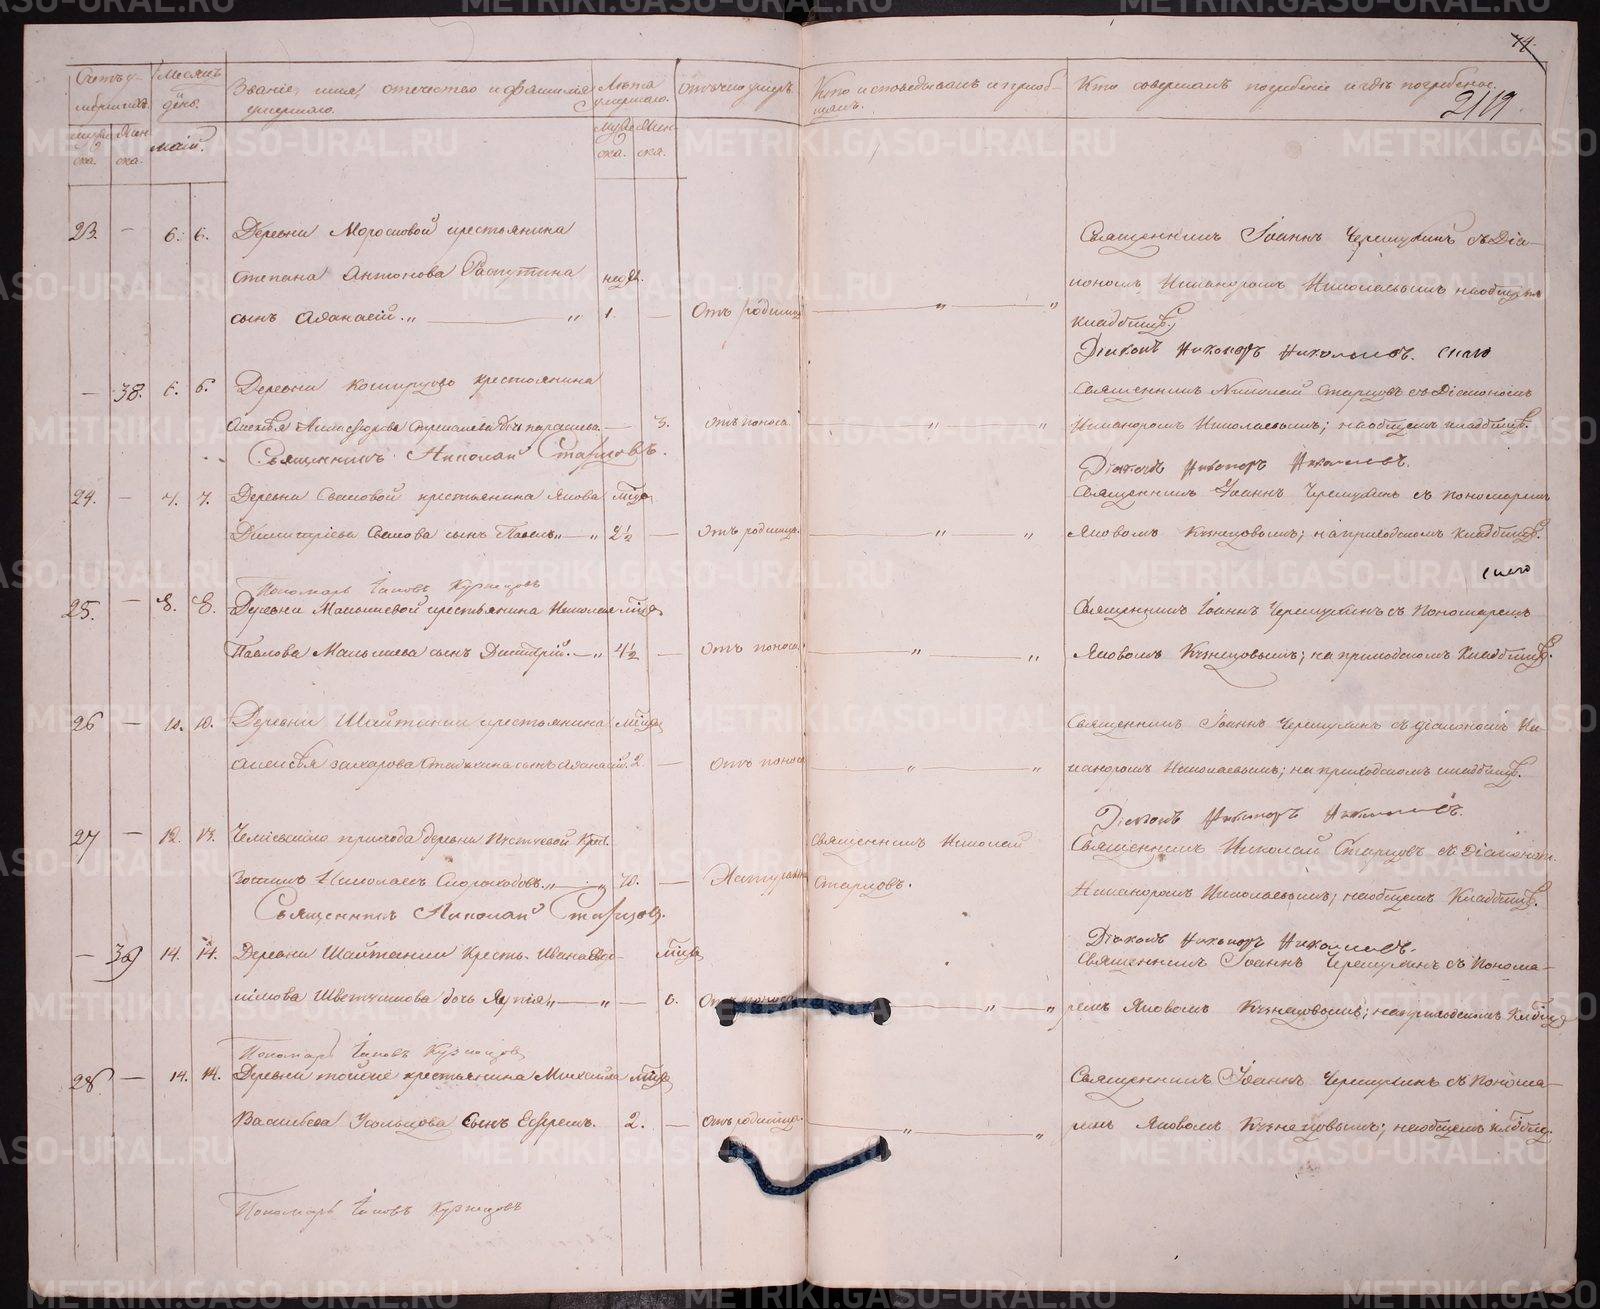 74.
2119
Счетъ умершихъ.
Месяцъ и день.
Званіе, имя, отечество и фамилія умершаго.
Лѣта умершаго.
Отъ чего умеръ.
Кто исповѣдывалъ и пріобщалъ.
Кто совершалъ погребеніе и гдѣ погребенъ.
мужеска. женска.
май.
мужеска. женска.
23. — 6. 6. Деревни Морозовой крестьянина
Степана Антонова Распутина недѣл.
сынъ Аѳанасій. „ — „ 1. — Отъ родимца — „ — „
Священникъ Іоаннъ Черемухинъ съ Діа-
кономъ Никаноромъ Николаевымъ на общемъ
кладбищѣ.
Діаконъ Никаноръ Николаевъ.
— 38. 6. 6. Деревни крестьянина
Алексѣя дочь Параскева — 3. Отъ поноса. — „ — „
Священникъ Николай Старцовъ съ Діакономъ
Никаноромъ Николаевымъ; на общемъ кладбищѣ.
Священникъ Николай Старцовъ.
Діаконъ Никаноръ Николаевъ.
24. — 7. 7. Деревни крестьянина Якова мѣсяц.
Димитріева сынъ Павелъ „ — „ 2½ — Отъ родимца. — „ — „
Священникъ Іоаннъ Черемухинъ съ пономаремъ
Яковомъ Кузнецовымъ; на приходскомъ кладбищѣ.
Пономарь Іаковъ Кузнецовъ
25. — 8. 8. Деревни Малышевой крестьянина Николая мѣсяц.
Павлова Малышева сынъ Димитрій. — „ 4½ — Отъ поноса. — „ — „
Священникъ Іоаннъ Черемухинъ съ Пономаремъ
Яковомъ Кузнецовымъ; на приходскомъ кладбищѣ.
26 — 10. 10. Деревни Шайтанки крестьянина мѣсяц.
Алексѣя Захарова сынъ Аѳанасій. 2. — Отъ поноса — „ — „
Священникъ Іоаннъ Черемухинъ съ діакономъ Ни-
каноромъ Николаевымъ; на приходскомъ кладбищѣ.
Діаконъ Никаноръ Николаевъ.
27 — 12. 13. прихода деревни Крест.
Николаевъ Скороходовъ. „ — „ 70. —
Священникъ Николай
Старцовъ.
Священникъ Николай Старцовъ съ Діакономъ
Никаноромъ Николаевымъ; на общемъ Кладбищѣ.
Священникъ Николай Старцовъ.
Діаконъ Никаноръ Николаевъ.
— 39 14. 14. Деревни Шайтанки Кресть. Ивана мѣсяц.
дочь „ — „ — 6. Отъ поноса — „ — „
Священникъ Іоаннъ Черемухинъ съ Понома-
ремъ Яковомъ Кузнецовымъ; на приходскомъ Кладбищѣ
Пономарь Іаковъ Кузнецовъ
28 — 14. 14. Деревни тойже крестьянина Михаила мѣсяц.
Васильева Усольцова сынъ Ефремъ. 2. — Отъ родимца. — „ — „
Священникъ Іоаннъ Черемухинъ съ Понома-
ремъ Яковомъ Кузнецовымъ; на общемъ кладбищ.
Пономарь Іаковъ Кузнецовъ
METRIKI.GASO-URAL.RU